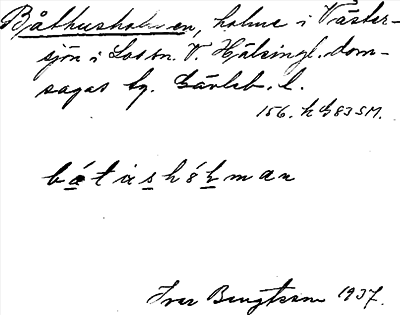 Båthusholmen, holme i Väster-
sjön i Los sn. V. Hälsingl. dom-
sagas tg. Gävleb. l.
156. h G 83 SM.
bátashólman
Ivar Bengtsson 1937.